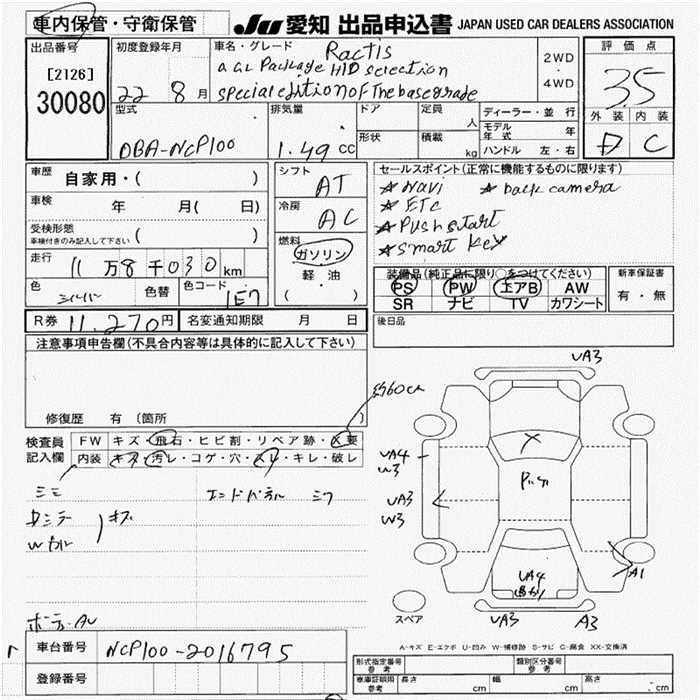 車内保管・守衛保管
JU 愛知 出品申込書 JAPAN USED CAR DEALERS ASSOCIATION
出品番号
[2126]
30080
初度登録年月
22 8 月
車名・グレード Ractis
a GL Package HID selection
special edition of the base grade
2WD
・
4WD
評価点
3.5
外装 内装
D C
型式
DBA-NCP100
排気量
1.49 cc
ドア
定員
人
形状
積載
kg
ディーラー・並行
モデル年式 年
ハンドル 左・右
車歴 自家用・( )
車検 年 月( 日)
受検形態
車検付きのみ記入して下さい ( )
走行 11 万 8 千 030 km
色 シルバー 色替 色コード 1E7
シフト AT
冷房 AC
燃料 ガソリン
軽・油
( )
セールスポイント(正常に機能するものに限ります)
☆ Navi ☆ back camera
☆ ETC
☆ Push start
☆ smart key
装備品(純正品に限り○をつけてください)
PS PW エアB AW
SR ナビ TV カワシート
新車保証書
有・無
R券 11,270円 名変通知期限 月 日
後日品
注意事項申告欄(不具合内容等は具体的に記入して下さい)
修復歴 有 〔箇所 〕
約60cm
検査員
記入欄
FW キズ・飛石・ヒビ割・リペア跡・X要
内装 キズ・汚レ・コゲ・穴・スレ・キレ・破レ
シミ エンドパネル シワ
キズ
ボディAU
UA3
UA4
W3
UA3
W3
X
UA4
A1
スペア
UA3 A3
車台番号 NCP100-2016795
登録番号
A-キズ E-エクボ U-凹み W-補修跡 S-サビ C-腐食 XX-交換済
形式指定番号
参考
類別区分番号
参考
車庫証明用
参考
長さ cm 幅 cm 高さ cm